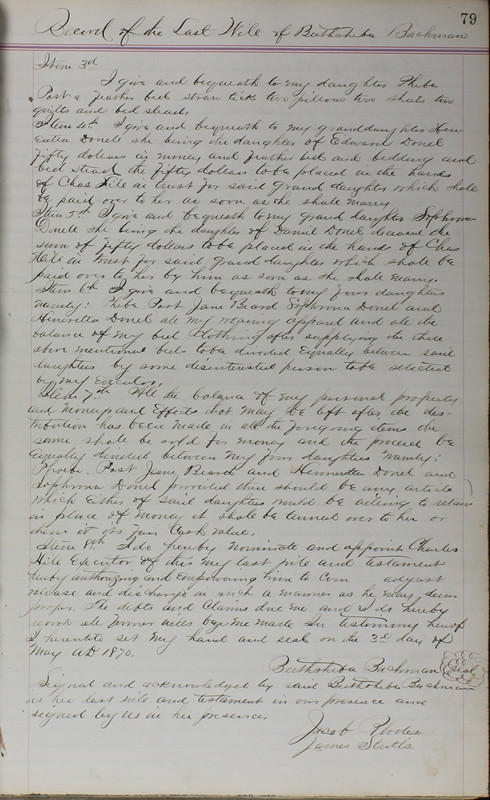 79
Record of the Last Will of Bethsheba Bachman
Item 3d
I give and bequeath to my daughter Phebe
Post a feather bed straw tick two pillows two sheets two
quilts and bed stead.
Item 4th I give and bequeath to my granddaughter Hen
Donell she being the daughter of Edward Donel
fifty dollars in money and feather bed and bedding and
bed stead the fifty dollars to be placed in the hands
of Chas Hile in trust for said grand daughter which shall
be paid over to her as soon as she shall marry
Item 5th I give and bequeath to my grand daughter Sophrona
Donell she being the daughter of Daniel Donel deceased the
sum of fifty dollars to be placed in the hand of Chas
Hile in trust for said grand daughter which shall be
paid over to her by him as soon as she shall marry.
Item 6th I give and bequeath to my four daughters
namely: Phebe Post Jane Beard Sophrona Donel and
Henrietta Donel all my wearing apparel and all the
balance of my bed clothing after supplying the three
above mentioned beds to be divided equally between said
daughters by some disinterested person to be selected
by my Executor.
Item 7th All the balance of my personal property
and moneys and effects that may be left after the des-
tribution has been made in all the foregoing items the
same shall be sold for money and the proceed be
equally divided between my four daughters namely:
Phoebe Post Jane Beard and Henrietta Donel and
Sophrona Donel provided there should be any article
which either of said daughters would be willing to retain
in place of money it shall be turned over to her or
them at its fair Cash value.
Item 8th I do hereby nominate and appoint Charles
Hile Executor of this my last will and testament
hereby authorizing and empowering him to Com adjust
release and discharge in such a manner as he may deem
proper. the debts and claims due me and I do hereby
revoke all former wills by me made In testimony hereof
I hereunto set my hand and seal on the 3d day of
May AD 1870.
Bethsheba Bachman Seal
Signed and acknowledged by said Bethsheba Bachman
as her last will and testament in our presence and
signed by us in her presence.
Jacob Rhodes
James Stults